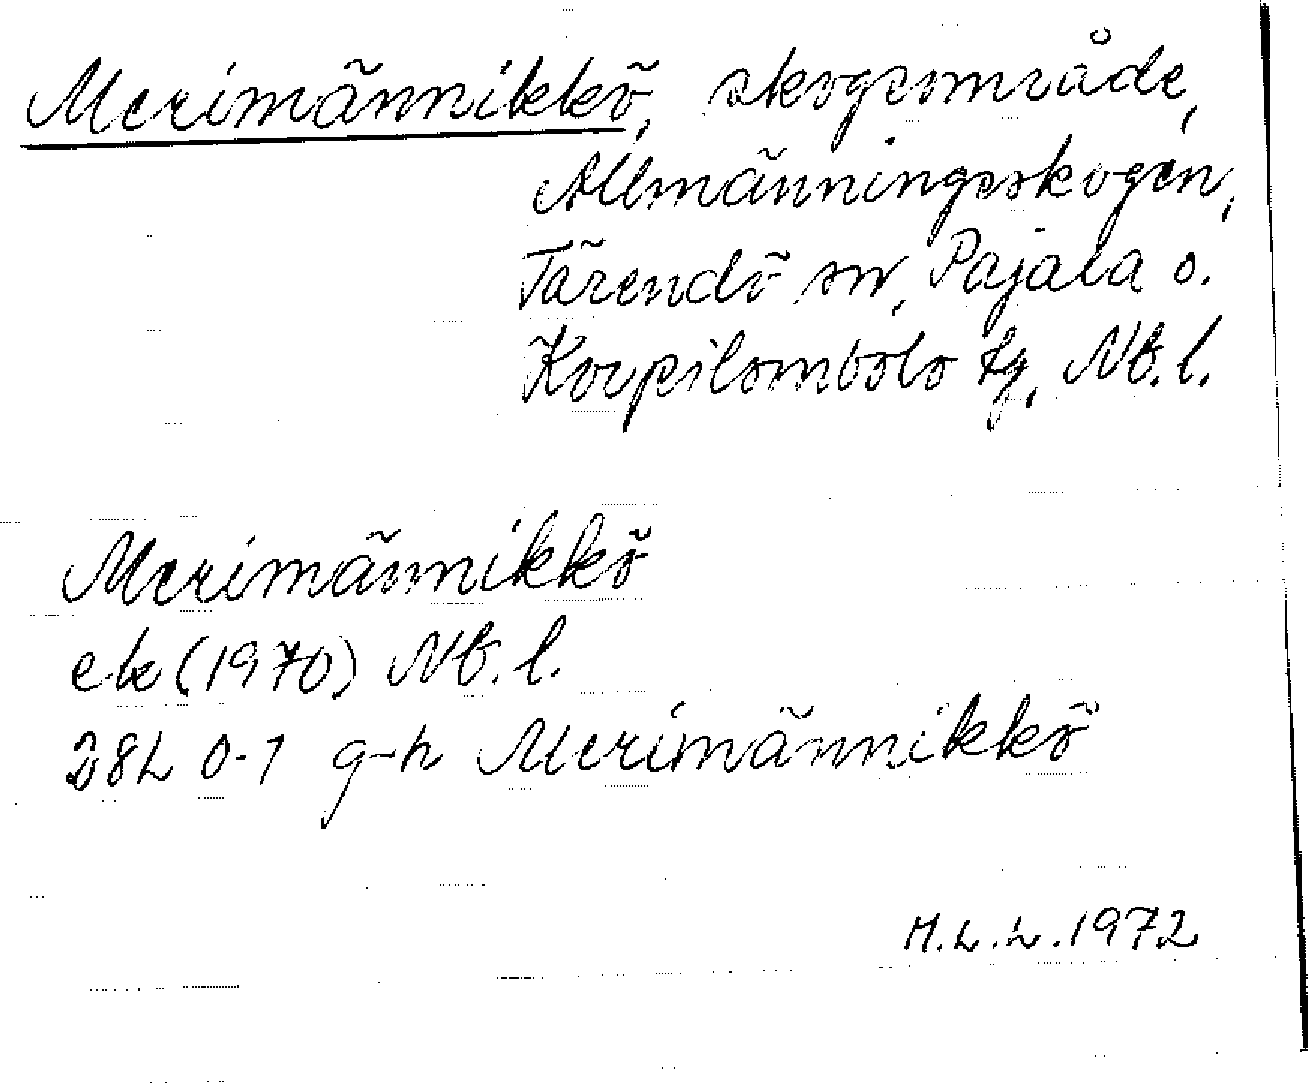 Merimännikkö, skogsområde,
Allmänningsskogen,
Tärendö sn, Pajala o.
Korpilombolo tg, Nb. l.
Merimännikkö
ek (1970) Nb. l.
28L 0-1 g-h Merimännikkö
M.L.L. 1972